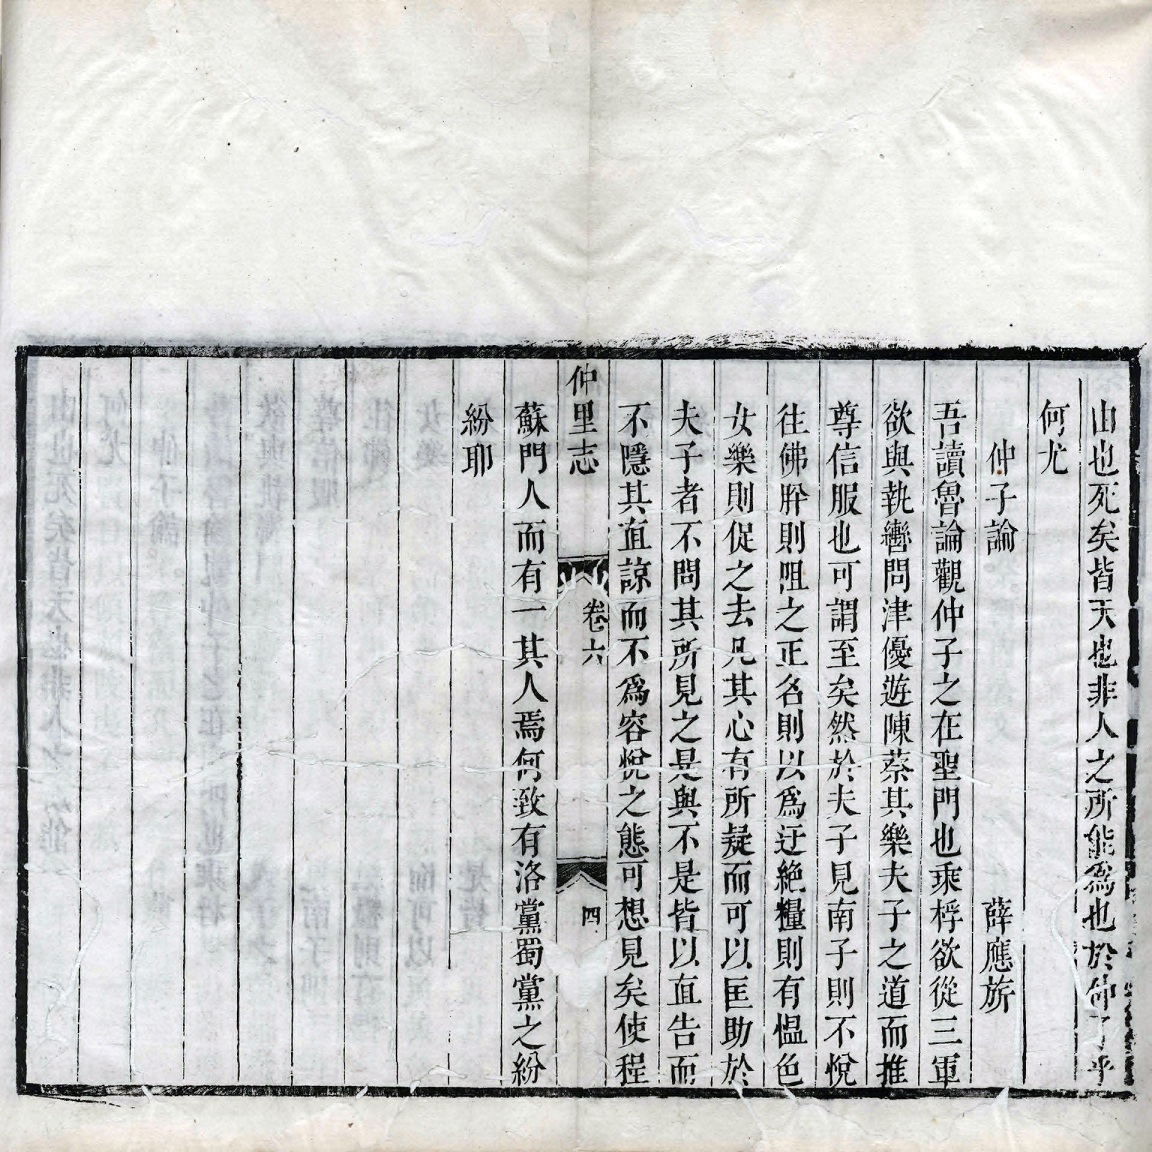 由也死矣皆天也非人之所能爲也於仲子乎
何尤
仲子論 薛應旂
吾讀魯論觀仲子之在聖門也乘桴欲從三軍
欲與執轡問津優遊陳蔡其樂夫子之道而推
尊信服也可謂至矣然於夫子見南子則不悅
往佛肸則阻之正名則以爲迂絶糧則有愠色
女樂則促之去凡其心有所疑而可以匡助於
夫子者不問其所見之是與不是皆以直告而
不隱其直諒而不爲容悅之態可想見矣使程
仲里志 卷六 四
蘇門人而有一其人焉何致有洛黨蜀黨之紛
紛耶